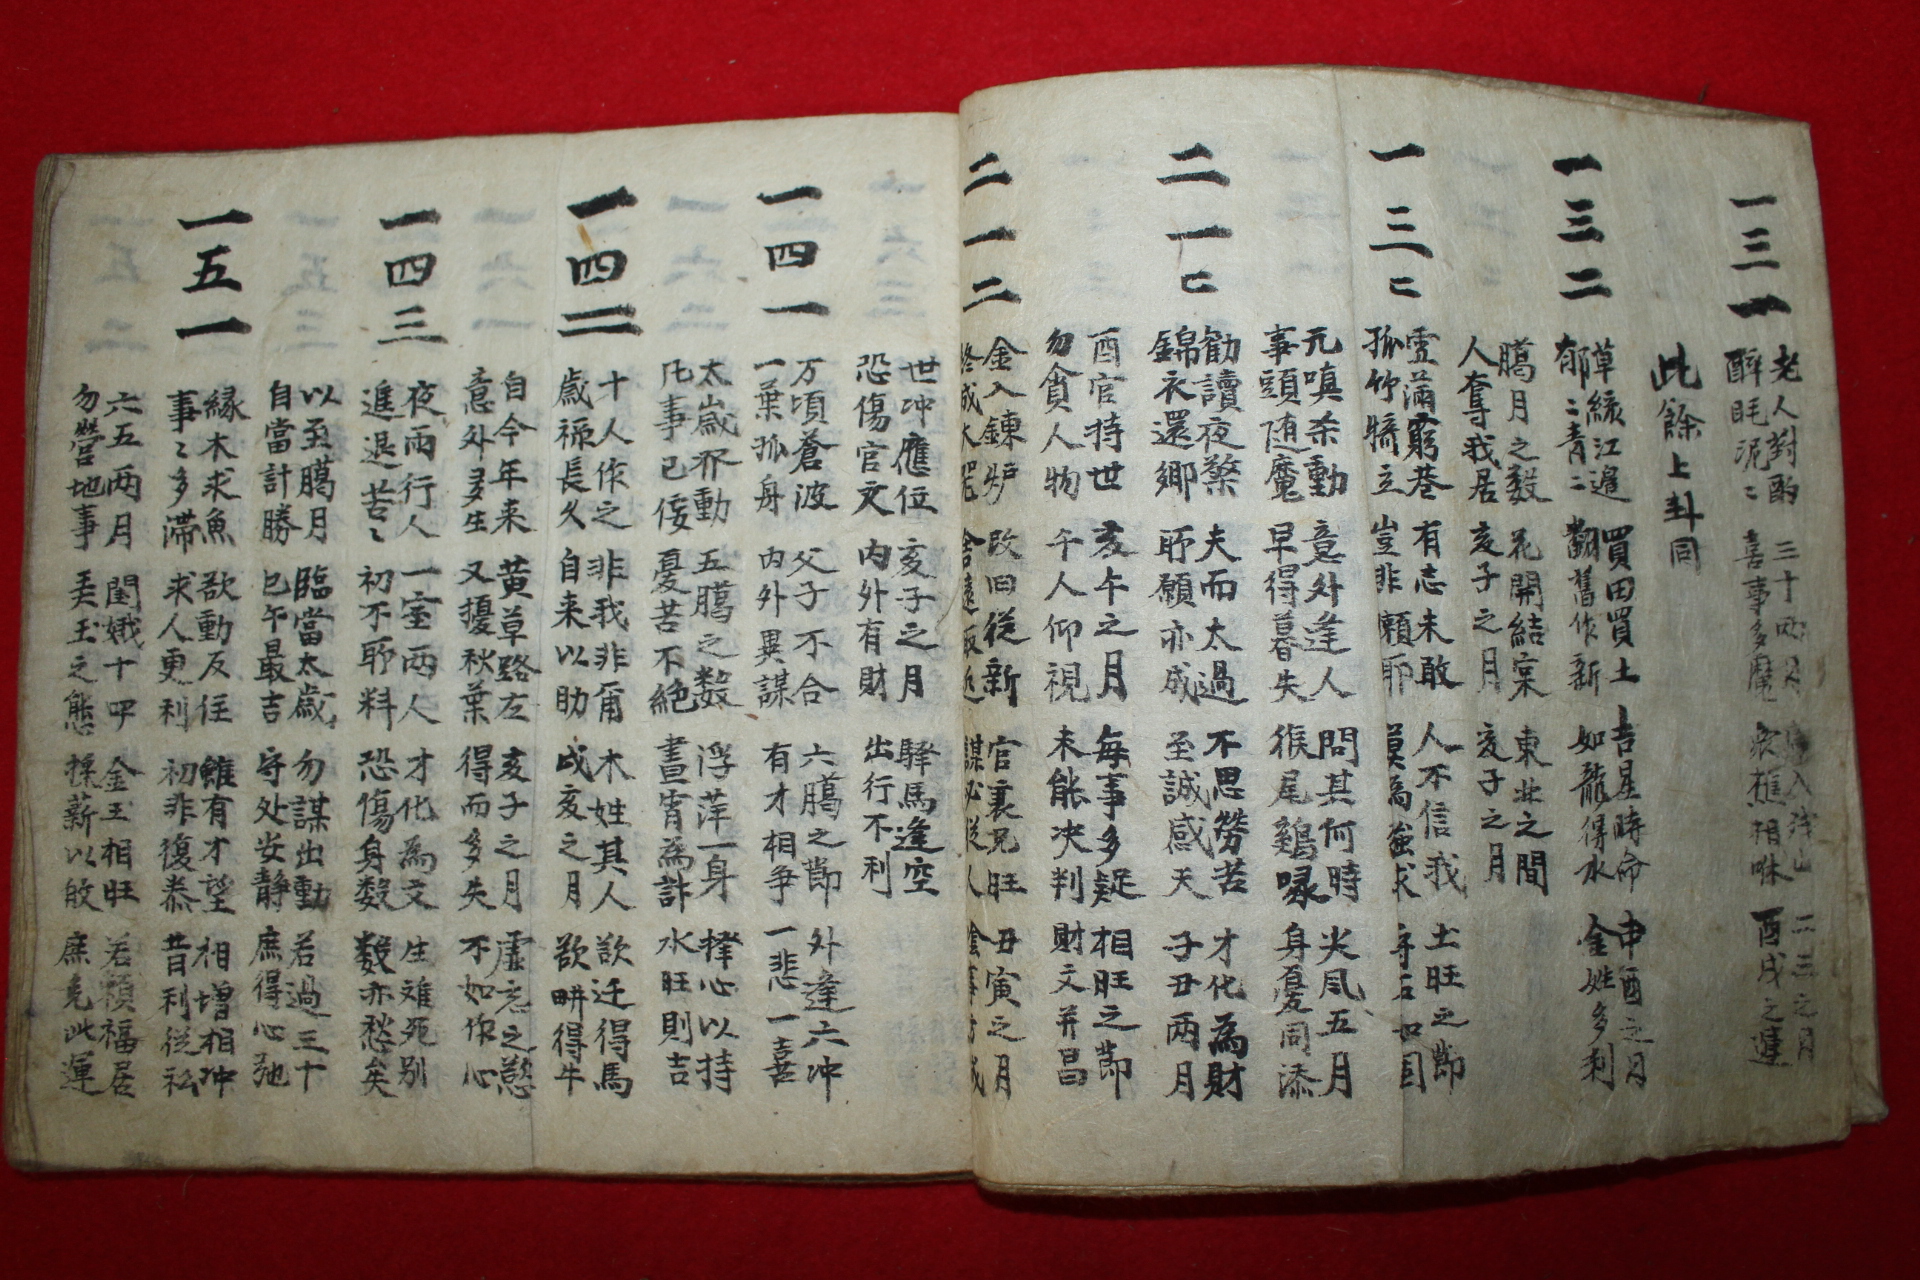 一三一
老人對酌 三十兩月 二三之月
醉眠泥〻 喜事多魔 相 酉戌之運
此餘上卦同
一三二
草綠江邊 買田買土 吉星時命 申酉之月
郁〻青〻 翻舊作新 如龍得水 金姓多利
臈月之数 花開結実 東北之間
人奪我居 亥子之月 亥子之月
一三〻
雪滿窮巷 有志未敢 人不信我 土旺之節
孤竹獨立 豈非願耶 莫為強求 守石如固
元嗔杀動 意外逢人 問其何時 火風五月
事頭随魔 早得暮失 猴尾鷄喙 身憂同添
二一〻
勧讀夜繁 夫而太過 不思勞苦 才化為財
錦衣還鄉 所願亦成 至誠感天 子丑兩月
酉官持世 亥午之月 每事多疑 相旺之節
勿貪人物 千人仰視 未能决判 財文并昌
二一二
金入鍊炉 改旧從新 官裏兄旺 丑寅之月
終成大 舍遠取近 謀 從人 陰事 成
世冲應位 亥子之月 驛馬逢空
恐傷官文 内外有財 出行不利
一四一
万頃蒼波 父子不合 六臈之節 外逢六冲
一葉孤舟 内外異謀 有才相爭 一悲一喜
太歲發動 五臈之数 浮萍一身 擇心以持
凡事已傍 憂苦不絶 晝宵為詐 水旺則吉
一四二
十人作之 非我非甫 木姓其人 欲迁得馬
歲福長久 自来以助 戌亥之月 欲畊得牛
自今年来 黄草路左 亥子之月 虛忘之慾
意外多生 又擾秋葉 得而多失 不如作心
一四三
夜雨行人 一室兩人 才化為文 生难死别
進退苦〻 初不耶料 恐傷身数 数亦愁矣
以至臈月 臨當太歲 勿謀出動 若過三十
自當計勝 巳午最吉 守处安靜 庶得心弛
一五一
緣木求魚 欲動反住 雖有才望 相增相冲
事〻多滯 求人更利 初非復泰 昔利從私
六五兩月 閨娥十四 金玉相旺 若願福居
勿營地事 美玉之態 採薪以 庶免此運